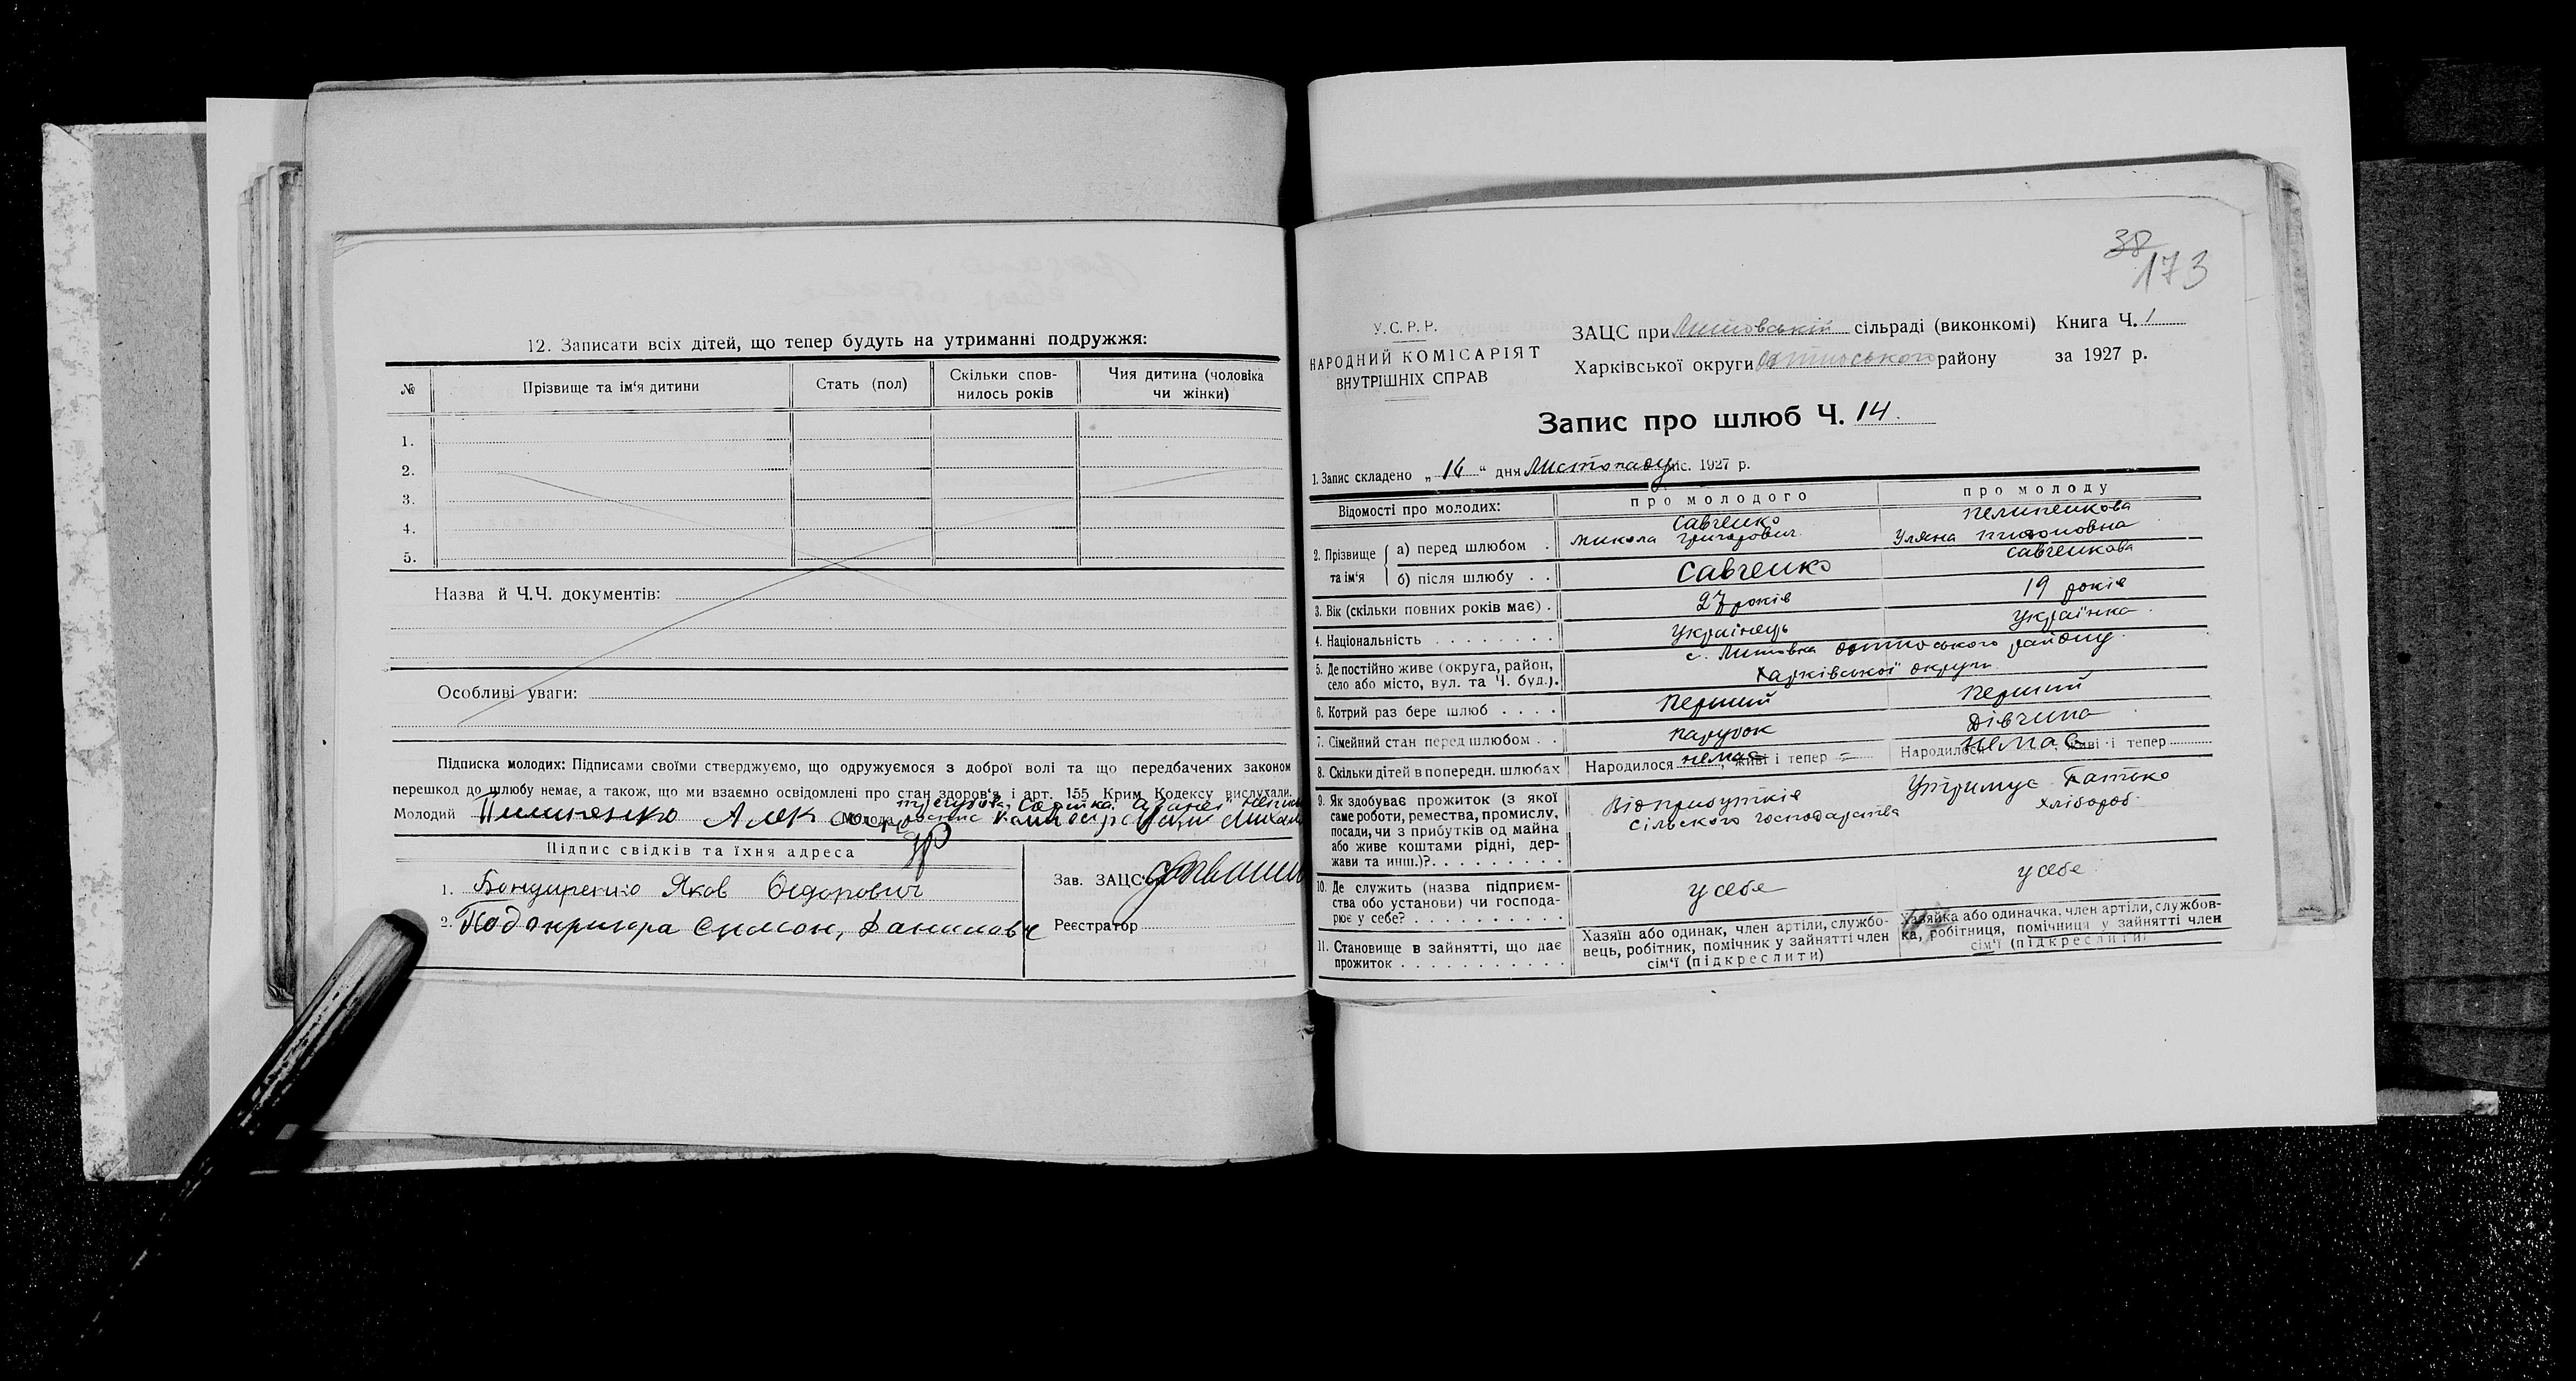 12. Записати всіх дітей, що тепер будуть на утриманні подружжя:
№ Прізвище та ім'я дитини Стать (пол) Скільки спов- нилось років Чия дитина (чоловіка чи жінки)
1.
2.
3.
4.
5.
Назва й Ч.Ч. документів:
Особливі уваги:
Підписка молодих: Підписами своїми стверджуємо, що одружуємося з доброї волі та що передбачених законом
перешкод до шлюбу немає, а також, що ми взаємно освідомлені про стан здоров'я і арт. 155 Крим Кодексу вислухали.
Молодий Пилипенко Молода
Підпис свідків та їхня адреса
1. Бондаренко Яков Федорович
Зав. ЗАЦС'ом
2. Симон, Данилович
Реєстратор
38
173
У.С.Р.Р.
НАРОДНИЙ КОМІСАРІЯТ
ВНУТРІШНІХ СПРАВ
ЗАЦС при сільраді (виконкомі) Книга Ч. 1
Харківської округи району за 1927 р.
Запис про шлюб Ч. 14.
1. Запис складено „16“ дня Листопаду міс. 1927 р.
Відомості про молодих: про молодого про молоду
2. Прізвище та ім'я
а) перед шлюбом . Савченко Микола Григорович Уляна
б) після шлюбу . . Савченко Савченкова
3. Вік (скільки повних років має) . 27 років 19 років
4. Національність . . . . . . . . Українець Українка
5. Де постійно живе (округа, район, село або місто, вул. та Ч. буд.). с. району Харківської округи
6. Котрий раз бере шлюб . . . . Перший Перший
7. Сімейний стан перед шлюбом . . Парубок Дівчина
8. Скільки дітей в попередн. шлюбах Народилося немає, живі і тепер = Народилося немає, живі і тепер
9. Як здобуває прожиток (з якої саме роботи, ремества, промислу, посади, чи з прибутків од майна або живе коштами рідні, дер- жави та инш.)?. . . . . . . . . Від прибутків сільского господарства Утримує Батько хлібороб
10. Де служить (назва підприєм- ства обо установи) чи господа- рює у себе? . . . . . . . . . . у себе у себе
11. Становище в зайнятті, що дає прожиток . . . . . . . . . . . Хазяїн або одинак, член артіли, службо- вець, робітник, помічник у зайнятті член сім'ї (підкреслити) Хазяйка або одиначка, член артіли, службов- ка, робітниця, помічниця у зайнятті член сім'ї (підкреслити)